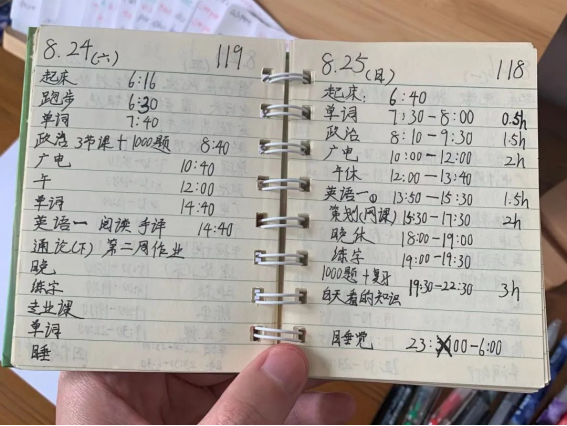 8.24(六) 119
起床 6:16
跑步 6:30
单词 7:40
政治 3节课+1000题 8:40
广电 10:40
午 12:00
单词 14:40
英语一 阅读 手译 14:40
通记(下) 第二周作业
晚
练字
专业课
单词
睡
8.25(日) 118
起床: 6:40
单词 7:30-8:00 0.5h
政治 8:10-9:30 1.5h
广电 10:00-12:00 2h
午休 12:00-13:40
英语一① 13:50-15:30 1.5h
策划(网课) 15:30-17:30 2h
晚休 18:00-19:00
练字 19:00-19:30
1000题+复习
白天看的知识 19:30-22:30 3h
睡觉 23:00-6:00